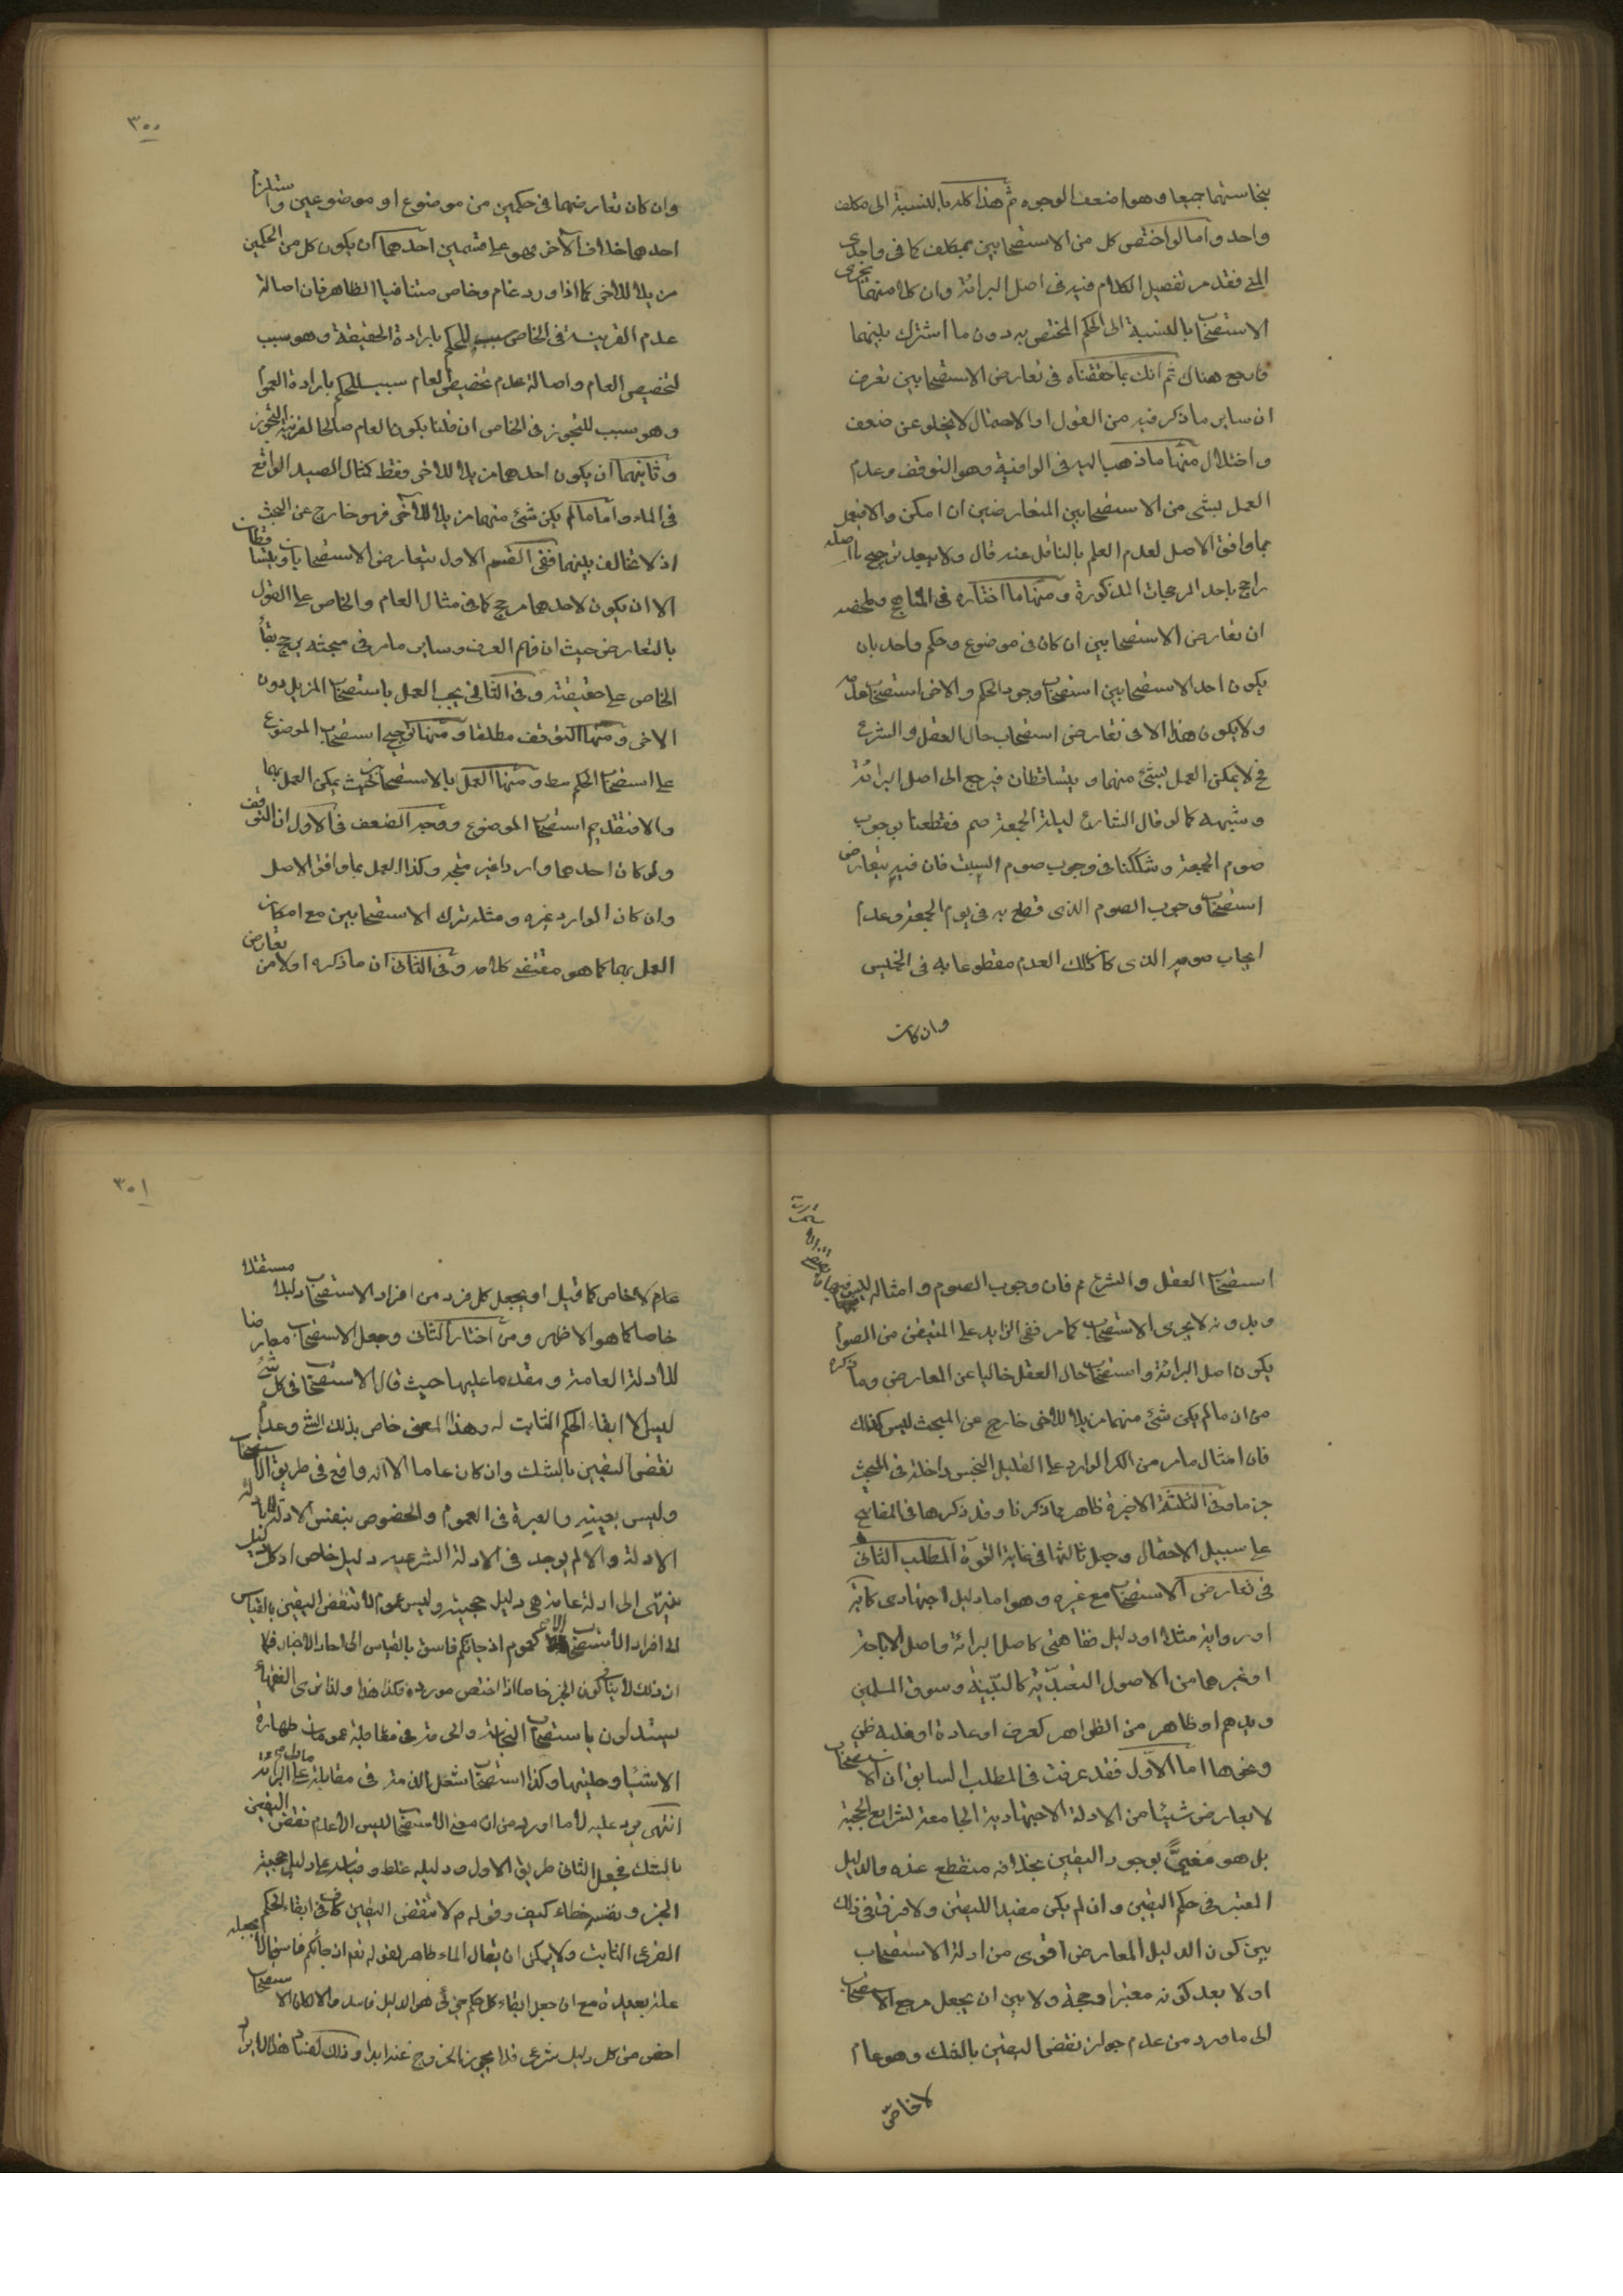 بنجاستهما جميعا وهو اضعف الوجوه ثم هذا كله بالنسبة الى مكلف
واحد واما لو اختص كل من الاستصحابين بمكلف كما فى واجدى
المنى فقد مر تفصيل الكلام فيه فى اصل البرائة وان كلا منهما يجرى
الاستصحاب بالنسبة الى الحكم المختص به دون ما اشترك بينهما
فارجع هناك ثم انك بما حققناه فى تعارض الاستصحابين تعرف
ان ساير ما ذكر فيه من القول او الاحتمال لا يخلو عن ضعف
واختلال منها ما ذهب اليه فى الوافية وهو التوقف وعدم
العمل بشئ من الاستصحابين المتعارضين ان امكن والا فيعمل
بما وافق الاصل لعدم العلم بالناقل عنه قال ولا يبعد ترجيح ما اصله
راجح باحد المرجحات المذكورة ومنها ما اختاره فى المناهج وملخصه
ان تعارض الاستصحابين ان كان فى موضوع وحكم واحد بان
يكون احد الاستصحابين استصحاب وجود الحكم والاخر استصحاب عدمه
ولا يكون هذا الا فى تعارض استصحاب حال العقل والشرع
فح لا يمكن العمل بشئ منهما ويتساقطان فيرجع الى اصل البرائة
وشبهه كما لو قال الشارع ليلة الجمعة صم فقطعنا بوجوب
صوم الجمعة وشككنا فى وجوب صوم السبت فان فيه يتعارض
استصحاب وجوب الصوم الذى قطع به فى يوم الجمعة وعدم
ايجاب صومه الذى كان ذلك العدم مقطوعا به فى الخميس
وان كان
٣٠٠
وان كان تعارضهما فى حكمين من موضوع او موضوعين واستلزم
احدهما خلاف الآخر فهو على قسمين احدهما ان يكون كل من الحكمين
مزيلا للاخر كما اذا ورد عام وخاص متنافيا الظاهر فان اصالة
عدم القرينة فى الخاص سبب للحكم بارادة الحقيقة وهو سبب
لتخصيص العام واصالة عدم تخصيص العام سبب للحكم بارادة العموم
وهو سبب للتجوز فى الخاص ان قلنا بكون العام صالحا لقرينة التجوز
وثانيهما ان يكون احدهما مزيلا للاخر فقط كمثال الصيد الواقع
فى الماء واما ما لم يكن شئ منهما مزيلا للآخر فهو خارج عن البحث
اذ لا تخالف بينهما ففى القسم الاول يتعارض الاستصحابان ويتساقطان
الا ان يكون لاحدهما مرجح كما فى مثال العام والخاص على القول
بالتعارض حيث ان فهم العرف وساير ما مر فى مبحثه يرجح بقاء
الخاص على حقيقته وفى الثانى يجب العمل باستصحاب المزيل دون
الاخر ومنها التوقف مطلقا ومنها ترجيح استصحاب الموضوع
على استصحاب الحكم مط ومنها العمل بالاستصحابين حيث يمكن العمل بهما
والا فتقديم استصحاب الموضوع ووجه الضعف فى الاول ان التوقف
ولو كان احدهما واردا غير متجه وكذا العمل بما وافق الاصل
وان كان الوارد غيره ومثله ترك الاستصحابين مع امكان
العمل بهما كما هو مقتضى كلامه وفى الثانى ان ما ذكره اولا من تعارض
استصحاب العقل والشرع م فان وجوب الصوم وامثاله ليس
وبدونه لا يجرى الاستصحاب كما مر ففى الزايد على المتيقن من الصوم
يكون اصل البرائة واستصحاب حال العقل خاليا عن المعارض وما ذكره
من ان ما لم يكن شئ منهما مزيلا للاخر خارج عن المبحث ليس كذلك
فان امثال ما مر من الكر الوارد على القليل النجس داخلة فى المبحث
جزما وفى الثلثة الاخيرة ظاهر مما ذكرنا وقد ذكرها فى المفاتيح
على سبيل الاحتمال وجعل ثالثها فى غاية القوة المطلب الثانى
فى تعارض الاستصحاب مع غيره وهو اما دليل اجتهادى كاية
او رواية مثلا او دليل فقاهتى كاصل البرائة واصل الاباحة
او غيرها من الاصول التعبدية كالبينة وسوق المسلمين
ويدهم او ظاهر من الظواهر كعرف او عادة او غلبة ظن
ونحوها اما الاول فقد عرفت فى المطلب السابق ان الاستصحاب
لا يعارض شيئا من الادلة الاجتهادية الجامعة لشرايع الحجية
بل هو مغيى بوجود اليقين بخلافه منقطع عنده والدليل
المعتبر فى حكم اليقين وان لم يكن مفيدا لليقين ولا فرق فى ذلك
بين كون الدليل المعارض اقوى من ادلة الاستصحاب
اولا بعد كونه معتبرا وحجة ولا بين ان يجعل مرجع الاستصحاب
الى ما ورد من عدم جواز نقض اليقين بالشك وهو عام
لا خاص
٣٠١
عام لا خاص كما قيل او يجعل كل فرد من افراد الاستصحاب دليلا مستقلا
خاصا كما هو الاظهر ومن اختار الثانى وجعل الاستصحاب معارضا
للادلة العامة ومقدما عليها حيث قال الاستصحاب فى كل شئ
ليس الا ابقاء الحكم الثابت له وهذا المعنى خاص بذلك الشئ وعدم
نقض اليقين بالشك وان كان عاما الا انه واقع فى طريق الاستصحاب
وليس بعينه والعبرة فى العموم والخصوص بنفس الادلة لا بادلة
الادلة والا لم يوجد فى الادلة الشرعية دليل خاص اذ كل دليل
ينتهى الى ادلة عامة هى دليل حجيته وليس عموم لا تنقض اليقين بالقياس
الى افراد الاستصحاب الا كعموم اذ جائكم فاسق بالقياس الى احاد الاخبار فكما
ان ذلك لا ينافى كون الخبر خاصا اذا اختص مورده فكذا هذا ولذا ترى الفقهاء
يستدلون باستصحاب النجاسة والحرمة فى مقابلة عمومات طهارة
الاشياء وحليتها وكذا استصحاب شغل الذمة فى مقابلة ما دل على البرائة
انتهى يرد عليه لاما اورد من ان معنى الاستصحاب ليس الا عدم نقض اليقين
بالشك فجعل الثانى طريق الاول ودليله غلط وقياسه على دليل حجية
الخبر ونفسه خطاء كيف وقوله م لا تنقض اليقين كاف فى ابقاء الحكم
الفرعى الثابت ولا يمكن ان يقال الماء طاهر لقوله تعم اذ جائكم فاسق الا بجعله
علة بعيدة مع ان جعل ابقاء كل حكم جزئى هو الدليل فاسد والا لكان الاستصحاب
اخص من كل دليل شرعى فلا يجوز الخروج عنه ابدا وذلك لفساد هذا الايراد